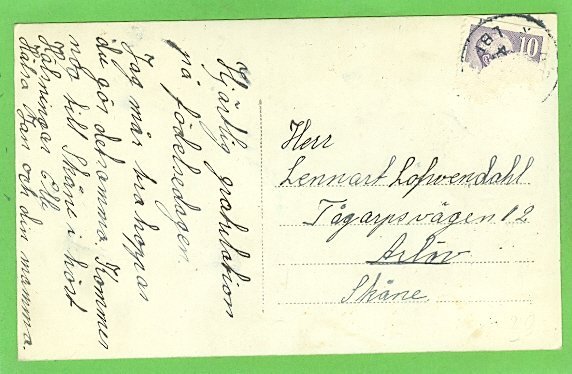 Hjärtlig gratulation
på födelsedagen
Jag mår bra hoppas
du gör detsamma. Kommer
nog till Skåne i höst
Hälsningar Elle
Hälsa Jan och din mamma.
Herr
Lennart Lofwendahl
Tågarpsvägen 12
Arlöv
Skåne
10